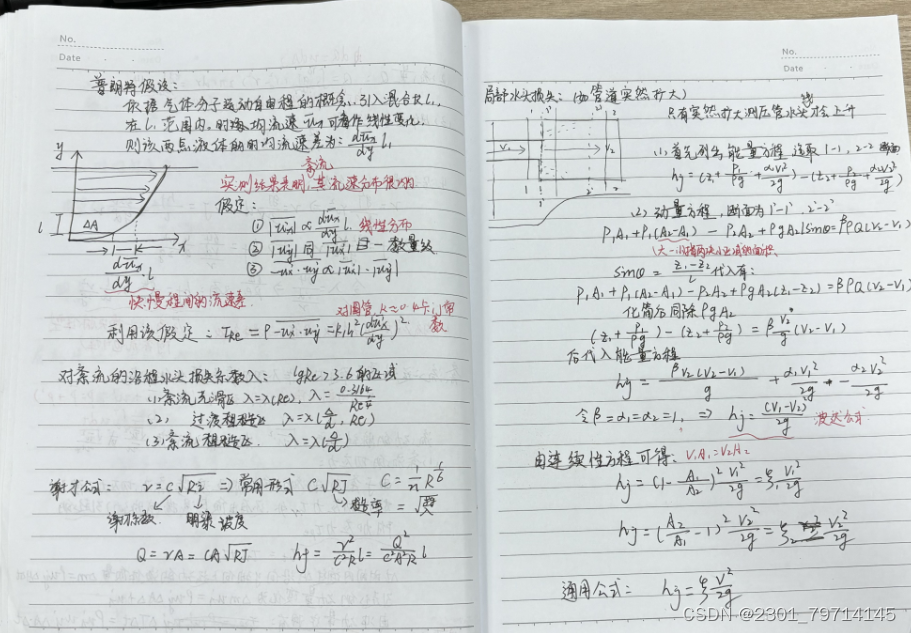 No.
Date
普朗特假设:
依据气体分子运动自由程的概念,引入混合长l₁,
在l₁范围内,时均流速 ū_x 可看作线性变化.
则该两点液体的时均流速差为: dū_x/dy l₁
紊流
实测结果表明,其流速分布很均
假定:
y
① |u_x'| ∝ dū_x/dy l₁ 线性分布
② |u_y'| 同 |u_x'| 同一数量级
③ -u_x'·u_y' ∝ |u_x'|·|u_y'|
l
ΔA
x
dū_x/dy · l
快慢层间的流速差
对圆管,
常数
利用该假定: τ_Re = ρ -u_x'·u_y' = k₁l₁²(dū_x/dy)².
对紊流的沿程水头损失系数λ: lgRe>3.6的区域
(1) 紊流光滑区 λ=λ(Re), λ=0.3164/Re^¼
(2) 过渡粗糙区 λ=λ(Δ/d, Re)
(3) 紊流粗糙区. λ=λ(Δ/d)
谢才公式: v=C√RJ ⇒ 常用形式 C√RJ C=1/n R^(1/6)
谢才系数 明渠坡度
Q=vA=CA√RJ hf=v²/C²R l=Q²/C²A²R l
No.
Date
局部水头损失: (如管道突然扩大)
只有突然扩大测压管水头会上升
V₁
V₂
(1) 首先列出能量方程 选取1-1, 2-2 断面
hj=(z₁+p₁/ρg+α₁v₁²/2g)-(z₂+p₂/ρg+α₂v₂²/2g)
(2) 动量方程, 断面为1'-1', 2'-2'
p₁A₁+p₁(A₂-A₁)-p₂A₂+ρgA₂lsinθ=βρQ(v₂-v₁)
sinθ=(z₁-z₂)/l 代入有:
p₁A₁+p₁(A₂-A₁)-p₂A₂+ρgA₂(z₁-z₂)=βρQ(v₂-v₁)
化简合同除ρgA₂
(z₁+p₁/ρg)-(z₂+p₂/ρg)=β v₂/g (v₂-v₁)
后代入能量方程
hj=βv₂(v₂-v₁)/g + α₁v₁²/2g - α₂v₂²/2g
令β=α₁=α₂=1, ⇒ hj=(v₁-v₂)²/2g 波达公式
由连续性方程可得: V₁A₁=V₂A₂
hj=(1-A₁/A₂)² v₁²/2g=ξ₁ v₁²/2g
hj=(A₂/A₁-1)² v₂²/2g=ξ₂ v₂²/2g
通用公式: hj=ξ v²/2g
CSDN @2301_79714145